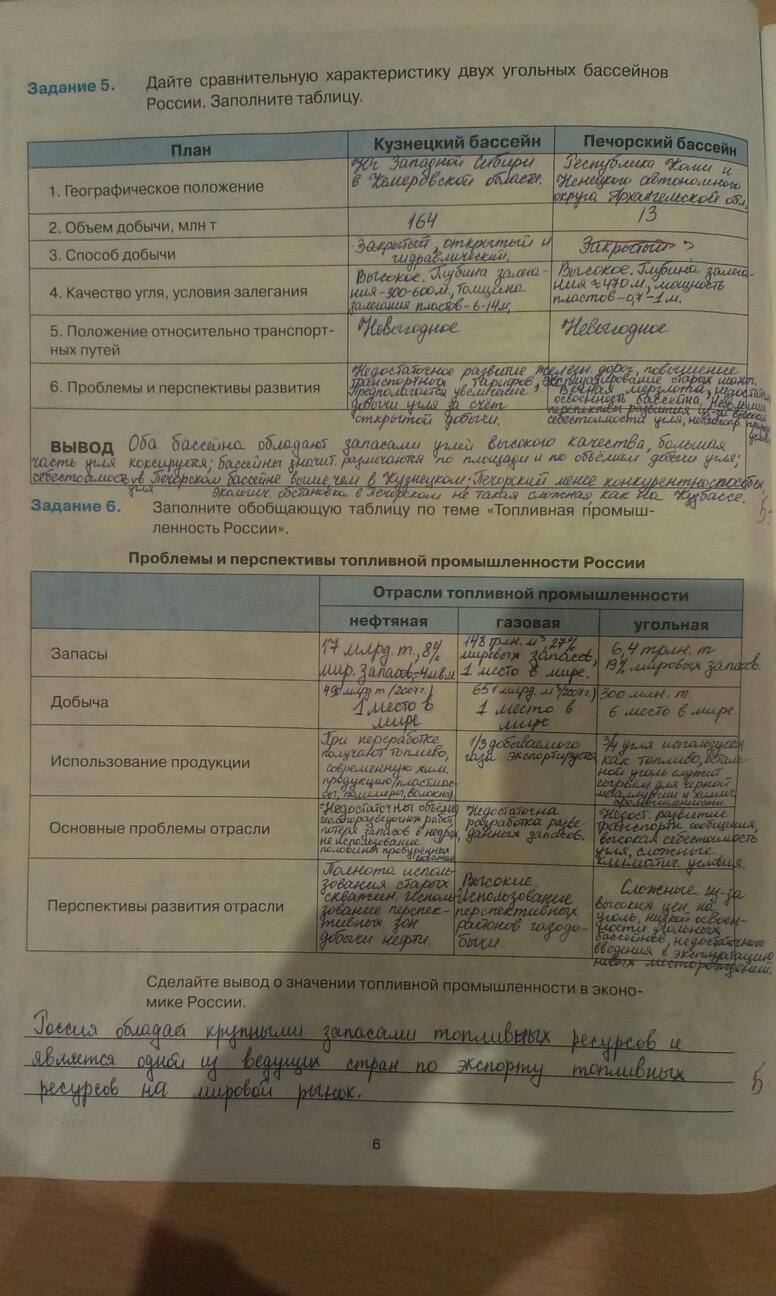 Задание 5. Дайте сравнительную характеристику двух угольных бассейнов
России. Заполните таблицу.
План
Кузнецкий бассейн
Печорский бассейн
1. Географическое положение
Юг Западной Сибири
в Кемеровской области.
Республика Коми и
Ненецкого автономного
округа Архангельской обл.
2. Объем добычи, млн т
164
13
3. Способ добычи
Закрытый, открытый и
гидравлический.
Закрытый
4. Качество угля, условия залегания
Высокое. Глубина залега-
ния-300-600м, толщина
залегания пластов-6-14м;
Высокое. Глубина залега-
ния ≈ 470м, мощность
пластов-0,7-1м.
5. Положение относительно транспорт-
ных путей
Невыгодное
Невыгодное
6. Проблемы и перспективы развития
Недостаточное развитие желези. дорог, повышение
транспортных тарифов, эксплуатирование старых шахт.
Предполагается увеличение
добычи угля за счет
открытой добычи.
Вечная мерзлота, недостаточ
освоенность бассейна,
перспективы развития из-за высокой
себестоимости угля,
ВЫВОД Оба бассейна обладают запасами углей высокого качества, большая
часть угля коксируется; бассейны значит. различаются по площади и по объёмам добычи угля;
себестоимость угля в Печорском бассейне выше чем в Кузнецком; Печорский менее конкурентноспособный
Экологич. обстановка в Печорском не такая сложная как на Кузбассе.
5
Задание 6. Заполните обобщающую таблицу по теме «Топливная промыш-
ленность России».
Проблемы и перспективы топливной промышленности России
Отрасли топливной промышленности
нефтяная
газовая
угольная
Запасы
17 млрд. т, 8%
мир. запасов-4место
148 трлн. м³ 27%
мировых запасов,
1 место в мире.
6,4 трлн. т
19% мировых запасов.
Добыча
490 млрд. т. (2007г.)
1 место в
мире
651 млрд. м³ (2007г.)
1 место в
мире
300 млн. т.
6 место в мире
Использование продукции
При переработке
получают топливо,
современную хим.
продукцию (пластмас-
сы, полимеры, волокно).
1/3 добываемого
газа экспортируется
3/4 угля используется
как топливо, осталь-
ной уголь служит
сырьём для черной
металлургии и химич.
промышленности.
Основные проблемы отрасли
Недостаточны объёмы
геологоразведочных работ,
потеря запасов в недрах,
не использование
половины пробуренных
скважин
Недостаточна
разработка разве-
данных запасов.
Недост. развитие
транспортн. сообщения,
высокая себестоимость
угля, сложные
климатич. условия.
Перспективы развития отрасли
Полнота исполь-
зования старых
скважин. Исполь-
зование перспек-
тивных зон
добычи нефти.
Высокие.
Использование
перспективных
районов газодо-
бычи.
Сложные из-за
высоких цен на
уголь, низкой освоен-
ности угольных
бассейнов, недостаточного
введения в эксплуатацию
новых месторождений.
Сделайте вывод о значении топливной промышленности в эконо-
мике России.
Россия обладает крупными запасами топливных ресурсов и
является одной из ведущих стран по экспорту топливных
ресурсов на мировой рынок.
5
6